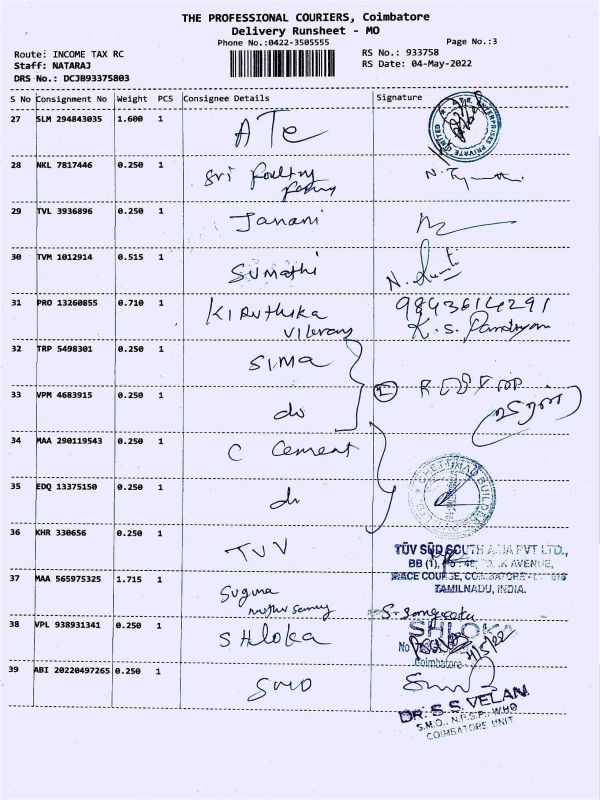 THE PROFESSIONAL COURIERS, Coimbatore
Delivery Runsheet - MO
Phone No.:0422-3505555
Page No.:3
Route: INCOME TAX RC
RS No.: 933758
Staff: NATARAJ
RS Date: 04-May-2022
DRS No.: DCJB93375803
S No Consignment No Weight PCS Consignee Details Signature
27 SLM 294843035 1.600 1 ATE
28 NKL 7817446 0.250 1 Sri Poultry
29 TVL 3936896 0.250 1 Janani
30 TVM 1012914 0.515 1 Sumathi
31 PRO 13260855 0.710 1 Kiruthika 9843614291
K.S. Pandiyan
32 TRP 5498301 0.250 1 SIMA
33 VPM 4683915 0.250 1 do
34 MAA 290119543 0.250 1 C Cement
35 EDQ 13375150 0.250 1 do
36 KHR 330656 0.250 1 TUV
TÜV SÜD SOUTH ASIA PVT LTD.,
BB (1), PARK AVENUE,
RACE COURSE, COIMBATORE
TAMILNADU, INDIA.
37 MAA 565975325 1.715 1 Suguna
38 VPL 938931341 0.250 1 Shloka SHLOKA
No
4/5/22
Coimbatore
39 ABI 20220497265 0.250 1 SMO
DR. S.S. VELAN
S.M.O., N.P.S.P., WHO
COIMBATORE UNIT